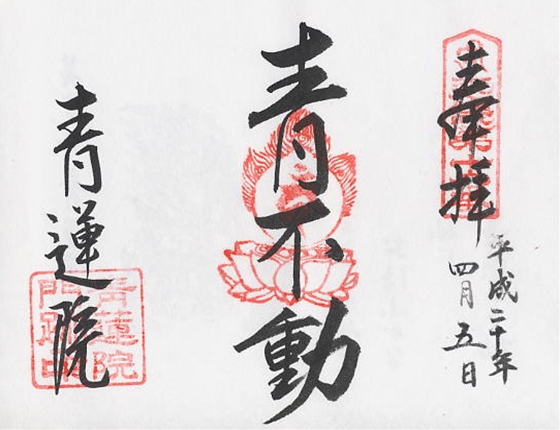 奉拝
平成二十年
四月五日
青不動
青蓮院
青蓮院
門跡印